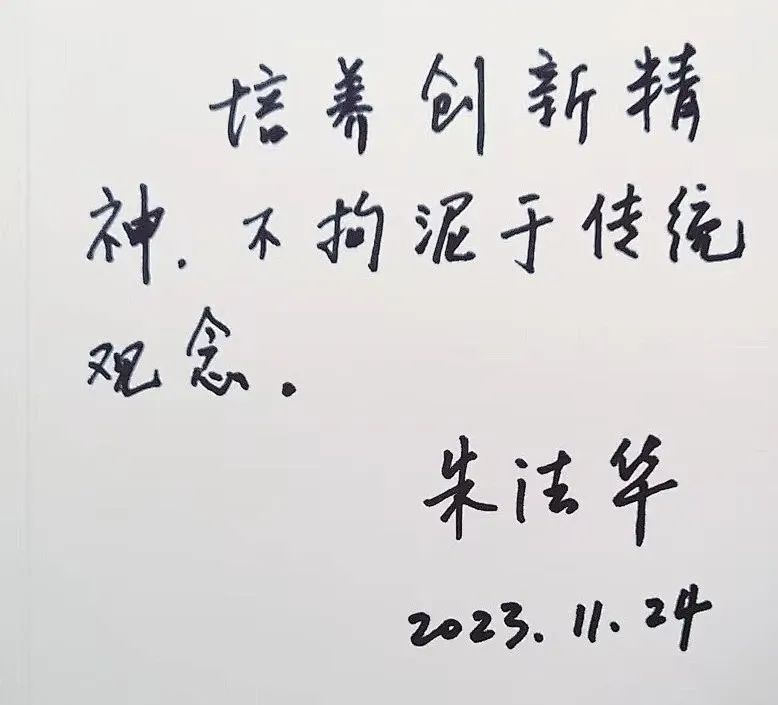 培养创新精
神.不拘泥于传统
观念.
朱法华
2023.11.24